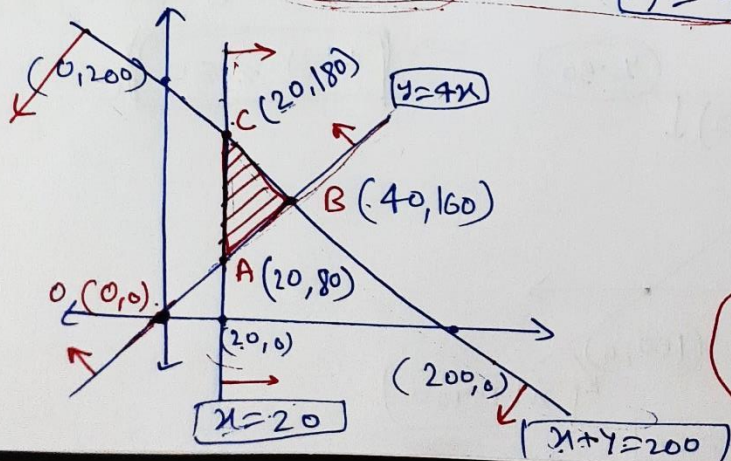 (0,200)
C (20,180)
y=4x
B (40,160)
A (20,80)
O (0,0)
(20,0)
(200,0)
x=20
x+y=200